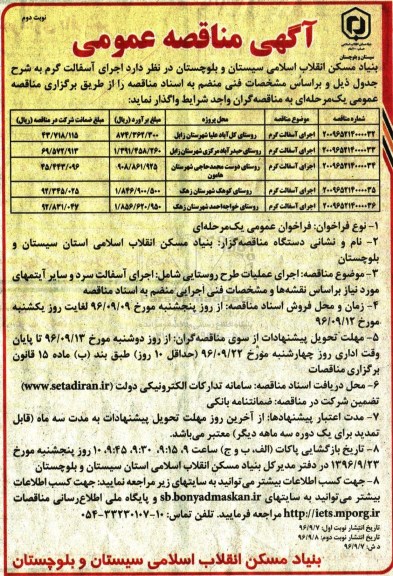 نوبت دوم
آگهی مناقصه عمومی
سیستان و بلوچستان
بنیاد مسکن انقلاب اسلامی سیستان و بلوچستان در نظر دارد اجرای آسفالت گرم به شرح
جدول ذیل و براساس مشخصات فنی منضم به اسناد مناقصه را از طریق برگزاری مناقصه
عمومی یک‌مرحله‌ای به مناقصه‌گران واجد شرایط واگذار نماید:
شماره مناقصه موضوع مناقصه محل پروژه مبلغ برآورد (ریال) مبلغ ضمانت شرکت در مناقصه (ریال)
۲۰۰۹۶۵۲۱۴۰۰۰۰۳۲ اجرای آسفالت گرم روستای گل‌آباد علیا شهرستان زابل ۸۷۴/۳۶۲/۳۰۰ ۴۳/۷۱۸/۱۱۵
۲۰۰۹۶۵۲۱۴۰۰۰۰۳۳ اجرای آسفالت گرم روستای حیدرآباد مرکزی شهرستان زابل ۱/۳۹۱/۴۵۸/۲۶۰ ۶۹/۵۷۲/۹۱۳
۲۰۰۹۶۵۲۱۴۰۰۰۰۳۴ اجرای آسفالت گرم روستای دوست محمدحاجی شهرستان هامون ۹۰۸/۸۶۱/۹۲۵ ۴۵/۴۴۳/۰۹۶
۲۰۰۹۶۵۲۱۴۰۰۰۰۳۵ اجرای آسفالت گرم روستای کوهک شهرستان زهک ۱/۸۴۶/۹۰۰/۵۰۰ ۹۲/۳۴۵/۰۲۵
۲۰۰۹۶۵۲۱۴۰۰۰۰۳۶ اجرای آسفالت گرم روستای خواجه‌احمد شهرستان زهک ۱/۸۵۶/۶۲۰/۹۵۰ ۹۲/۸۳۱/۰۴۷
۱- نوع فراخوان: فراخوان عمومی یک‌مرحله‌ای
۲- نام و نشانی دستگاه مناقصه‌گزار: بنیاد مسکن انقلاب اسلامی استان سیستان و
بلوچستان
۳- موضوع مناقصه: اجرای عملیات طرح روستایی شامل: اجرای آسفالت سرد و سایر آیتمهای
مورد نیاز براساس نقشه‌ها و مشخصات فنی اجرایی منضم به اسناد مناقصه
۴- زمان و محل فروش اسناد مناقصه: از روز پنجشنبه مورخ ۹۶/۰۹/۰۹ لغایت روز یکشنبه
مورخ ۹۶/۰۹/۱۲
۵- مهلت تحویل پیشنهادات از سوی مناقصه‌گران: از روز دوشنبه مورخ ۹۶/۰۹/۱۳ تا پایان
وقت اداری روز چهارشنبه مورخ ۹۶/۰۹/۲۲ (حداقل ۱۰ روز) طبق بند (ب) ماده ۱۵ قانون
برگزاری مناقصات
۶- محل دریافت اسناد مناقصه: سامانه تدارکات الکترونیکی دولت (www.setadiran.ir)
تضمین شرکت در مناقصه: ضمانتنامه بانکی
۷- مدت اعتبار پیشنهادها: از آخرین روز مهلت تحویل پیشنهادات به مدت سه ماه (قابل
تمدید برای یک دوره سه ماهه دیگر) معتبر می‌باشد.
۸- تاریخ بازگشایی پاکات (الف، ب و ج) ساعت ۹، ۹:۱۵، ۹:۳۰، ۹:۴۵، ۱۰ روز پنجشنبه مورخ
۱۳۹۶/۹/۲۳ در دفتر مدیرکل بنیاد مسکن انقلاب اسلامی استان سیستان و بلوچستان
۸- جهت کسب اطلاعات بیشتر می‌توانید به سایتهای زیر مراجعه نمایید: جهت کسب اطلاعات
بیشتر می‌توانید به سایتهای sb.bonyadmaskan.ir و پایگاه ملی اطلاع‌رسانی مناقصات
http://iets.mporg.ir مراجعه فرمایید. تلفن تماس: ۱۰-۳۳۲۳۰۱۰۷-۰۵۴
تاریخ انتشار نوبت اول: ۹۶/۹/۷
تاریخ انتشار نوبت دوم: ۹۶/۹/۸
د ش: ۹۶/۹/۷
بنیاد مسکن انقلاب اسلامی سیستان و بلوچستان